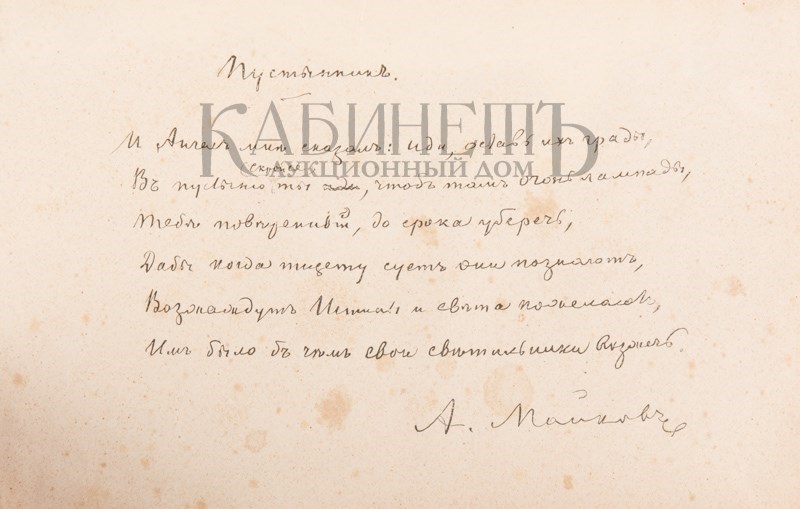 Пустынникъ.
КАБИНЕТЪ
АУКЦИОННЫЙ ДОМ
И Ангелъ мнѣ сказалъ: иди, оставь ихъ грады,
Въ пустыню скройся ты, чтобъ тамъ огонь лампады,
Тебѣ повѣренный, до срока уберечь,
Дабы когда тщету суетъ они познаютъ,
Возжаждутъ Истины и свѣта пожелаютъ,
Имъ было бъ чѣмъ свои свѣтильники возжечь.
А. Майковъ